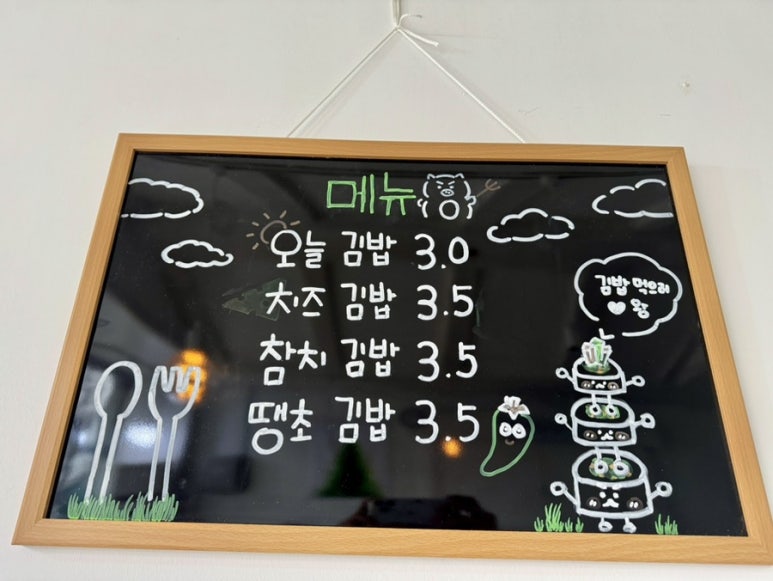 메뉴
오늘 김밥 3.0
치즈 김밥 3.5
참치 김밥 3.5
땡초 김밥 3.5
김밥 먹으러
왕